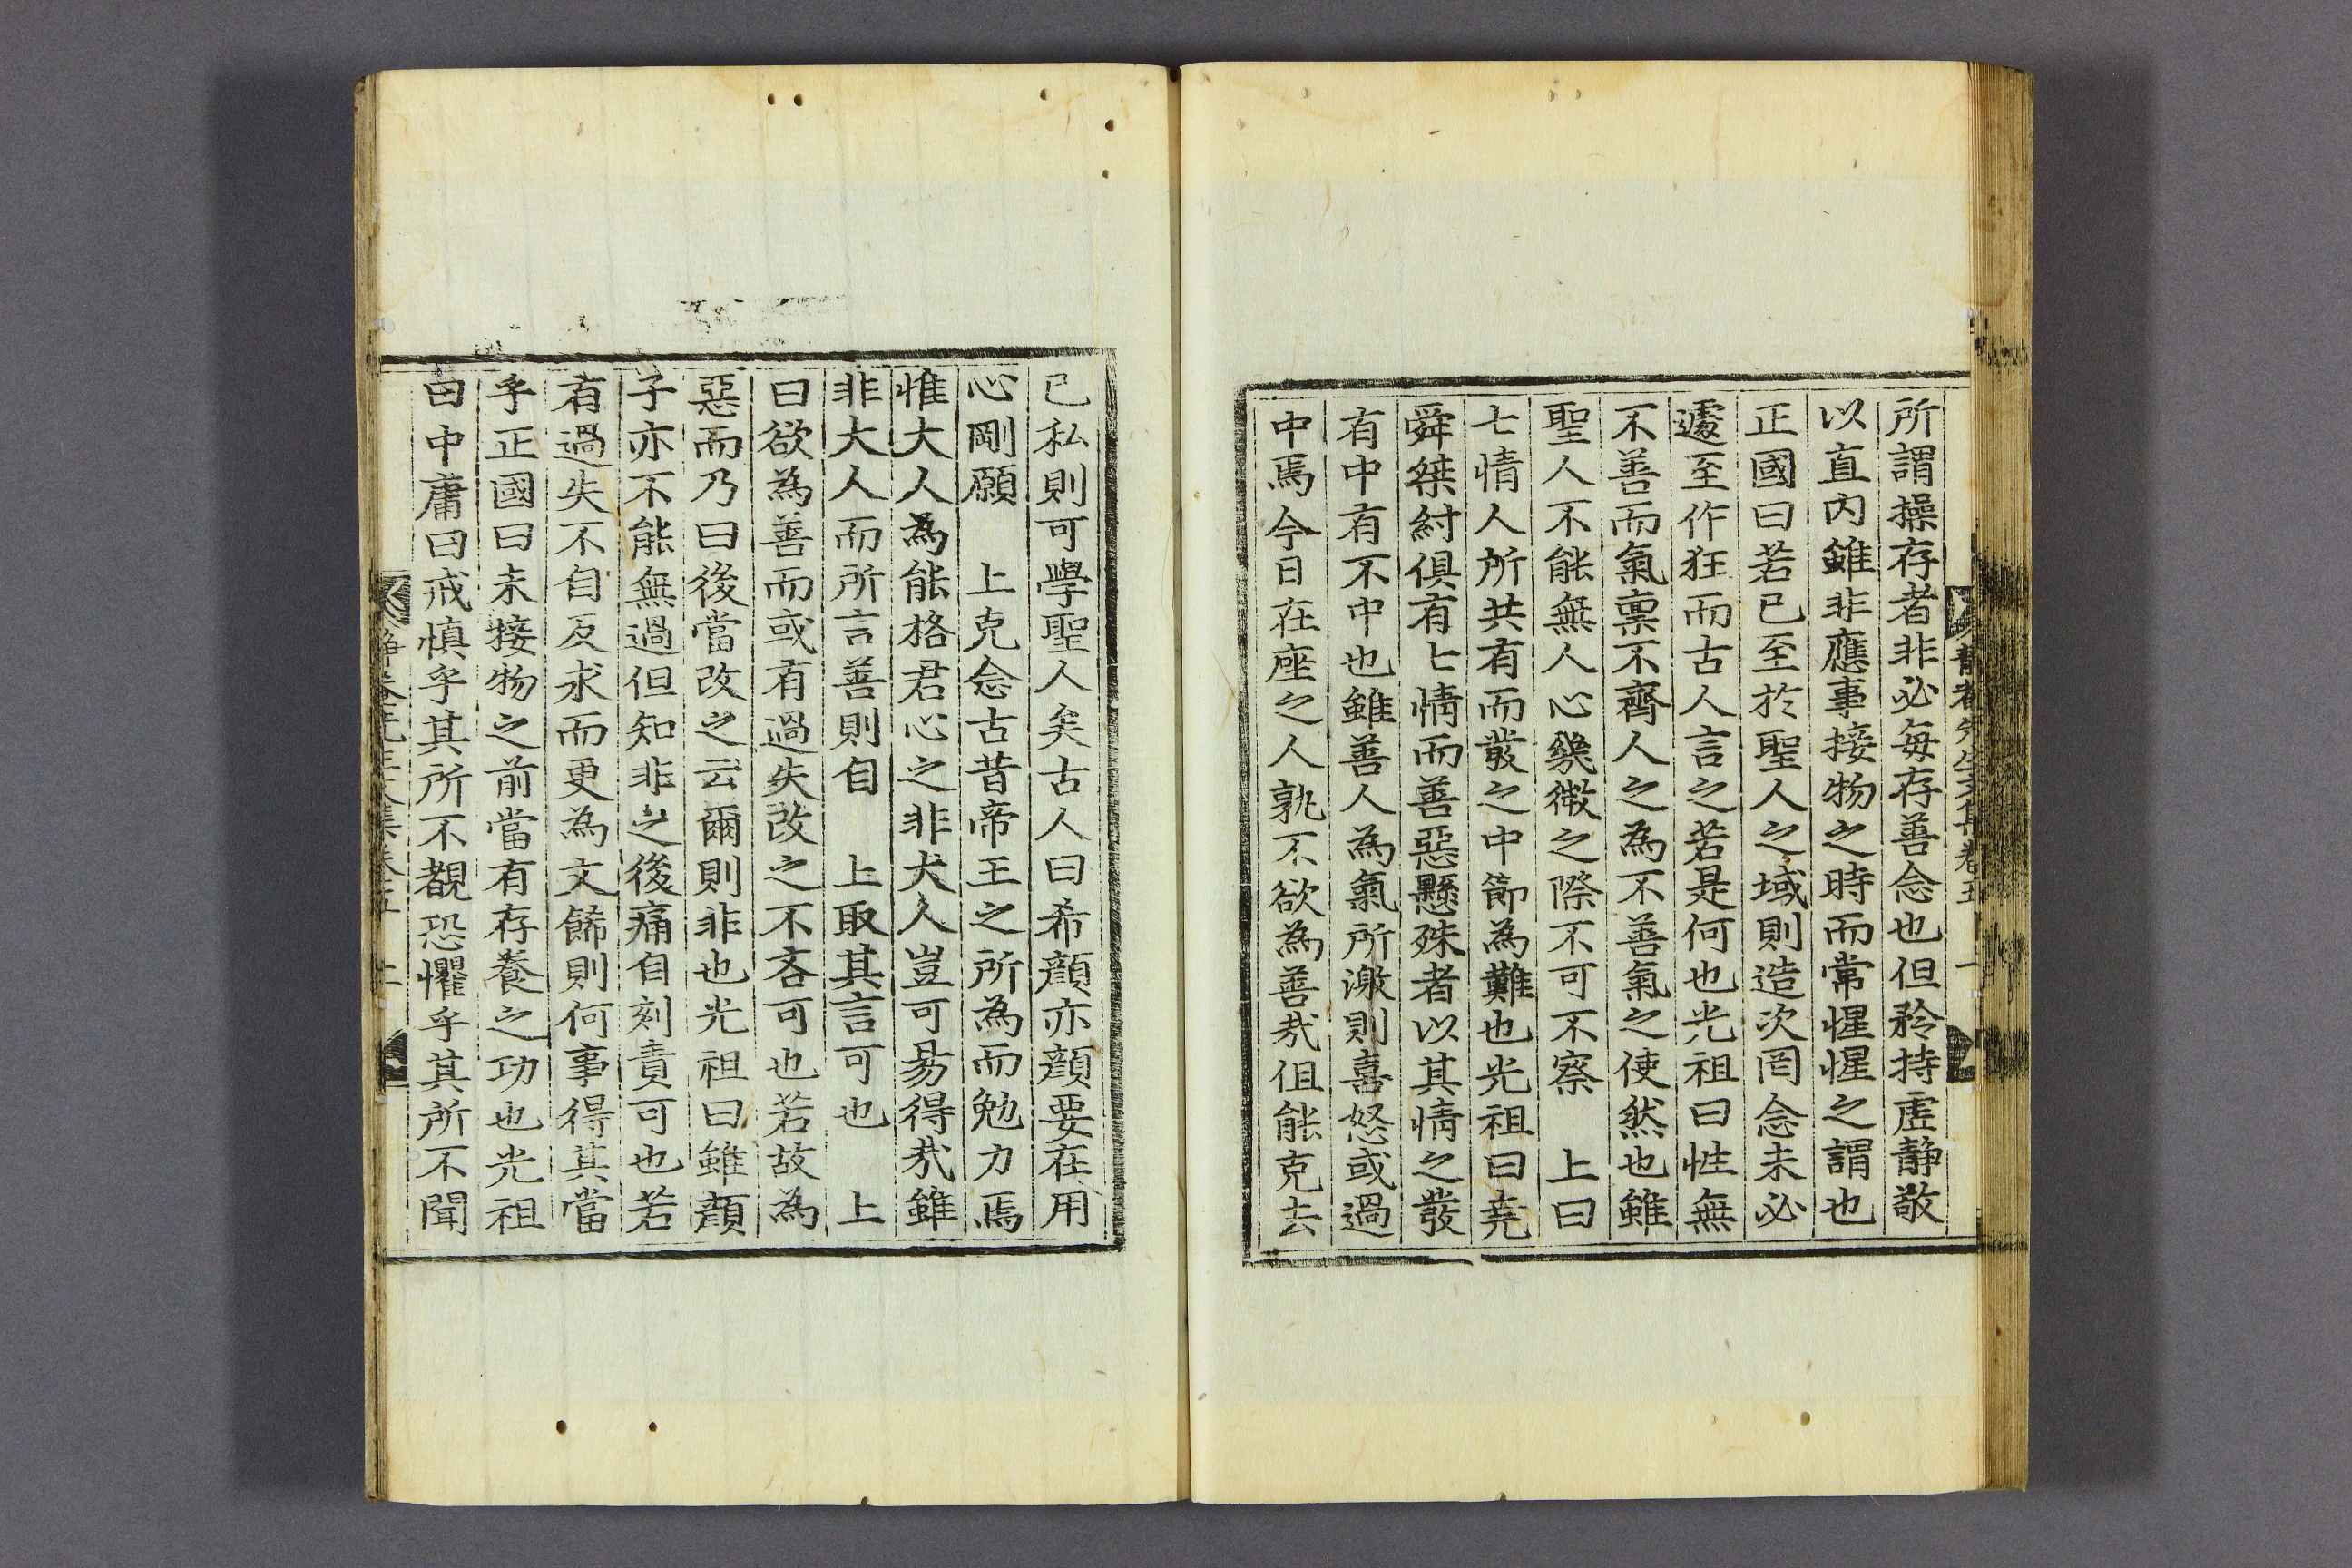 靜菴先生文集卷五 一
所謂操存者非必每存善念也但矜持虛静敬
以直内雖非應事接物之時而常惺惺之謂也
正國曰若已至於聖人之域則造次罔念未必
遽至作狂而古人言之若是何也光祖曰性無
不善而氣禀不齊人之為不善氣之使然也雖
聖人不能無人心㡬微之際不可不察　上曰
七情人所共有而發之中節為難也光祖曰堯
舜桀紂俱有七情而善惡懸殊者以其情之發
有中有不中也雖善人為氣所激則喜怒或過
中焉今日在座之人孰不欲為善㢤但能克去
已私則可學聖人矣古人曰希顔亦顔要在用
心剛願　上克念古昔帝王之所為而勉力焉
惟大人為能格君心之非大人豈可易得㢤雖
非大人而所言善則自　上取其言可也　上
曰欲為善而或有過失改之不吝可也若故為
惡而乃曰後當改之云爾則非也光祖曰雖顔
子亦不能無過但知非之後痛自刻責可也若
有過失不自反求而更為文餙則何事得其當
乎正國曰未接物之前當有存養之功也光祖
曰中庸曰戒慎乎其所不覩恐懼乎其所不聞
靜菴先生文集卷五 二